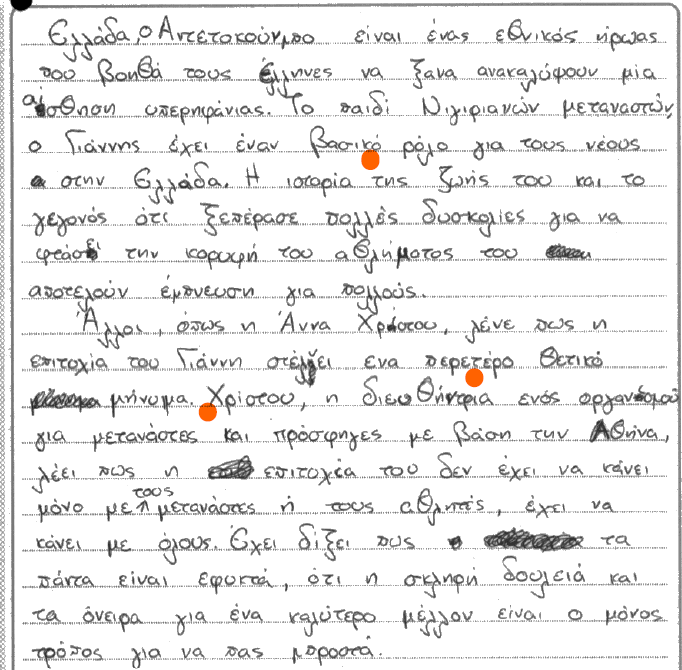 Ελλάδα, ο Αντετοκούνμπο είναι ένας εθνικός ήρωας
που βοηθά τους έλληνες να ξανα ανακαλύψουν μία
αίσθηση υπερηφάνιας. Το παιδί Νιγιριανών μεταναστών,
ο Γιάννης έχει έναν βασικό ρόλο για τους νέους
στην Ελλάδα. Η ιστορία της ζωής του και το
γεγονός ότι ξεπέρασε πολλές δυσκολίες για να
φτάσει την κορυφή του αθλήματος του
αποτελούν έμπνευση για πολλούς.
Άλλοι, όπως η Άννα Χρίστου, λένε πως η
επιτοχία του Γιάννη στέλνει ενα περετέρο θετικό
μήνυμα. Χρίστου, η διευθήντρια ενός οργανισμού
για μετανάστες και πρόσφηγες με βάση την Αθήνα,
λέει πως η επιτοχία του δεν έχει να κάνει
μόνο με τους μετανάστες ή τους αθλητές, έχει να
κάνει με όλους. Έχει δίξει πως τα
πάντα είναι εφικτά, ότι η σκληρή δουλειά και
τα όνειρα για ένα καλύτερο μέλλον είναι ο μόνος
τρόπος για να πας μπροστά.